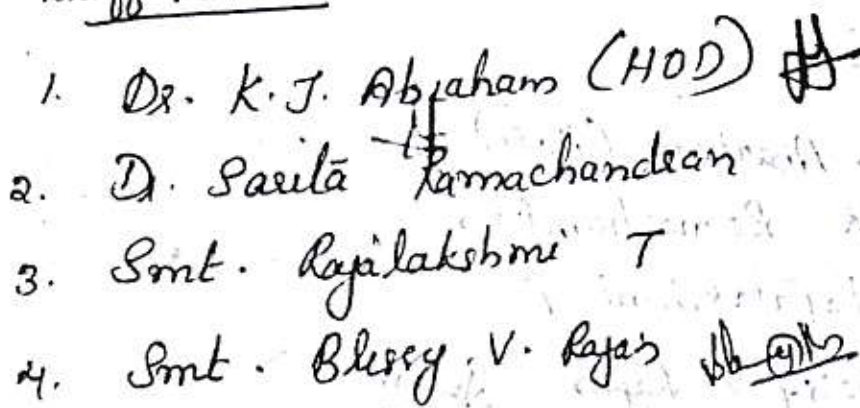 1. Dr. K.J. Abraham (HOD)
2. Dr. Sarita Ramachandran
3. Smt. Rajalakshmi T
4. Smt. Blessy. V. Rajan